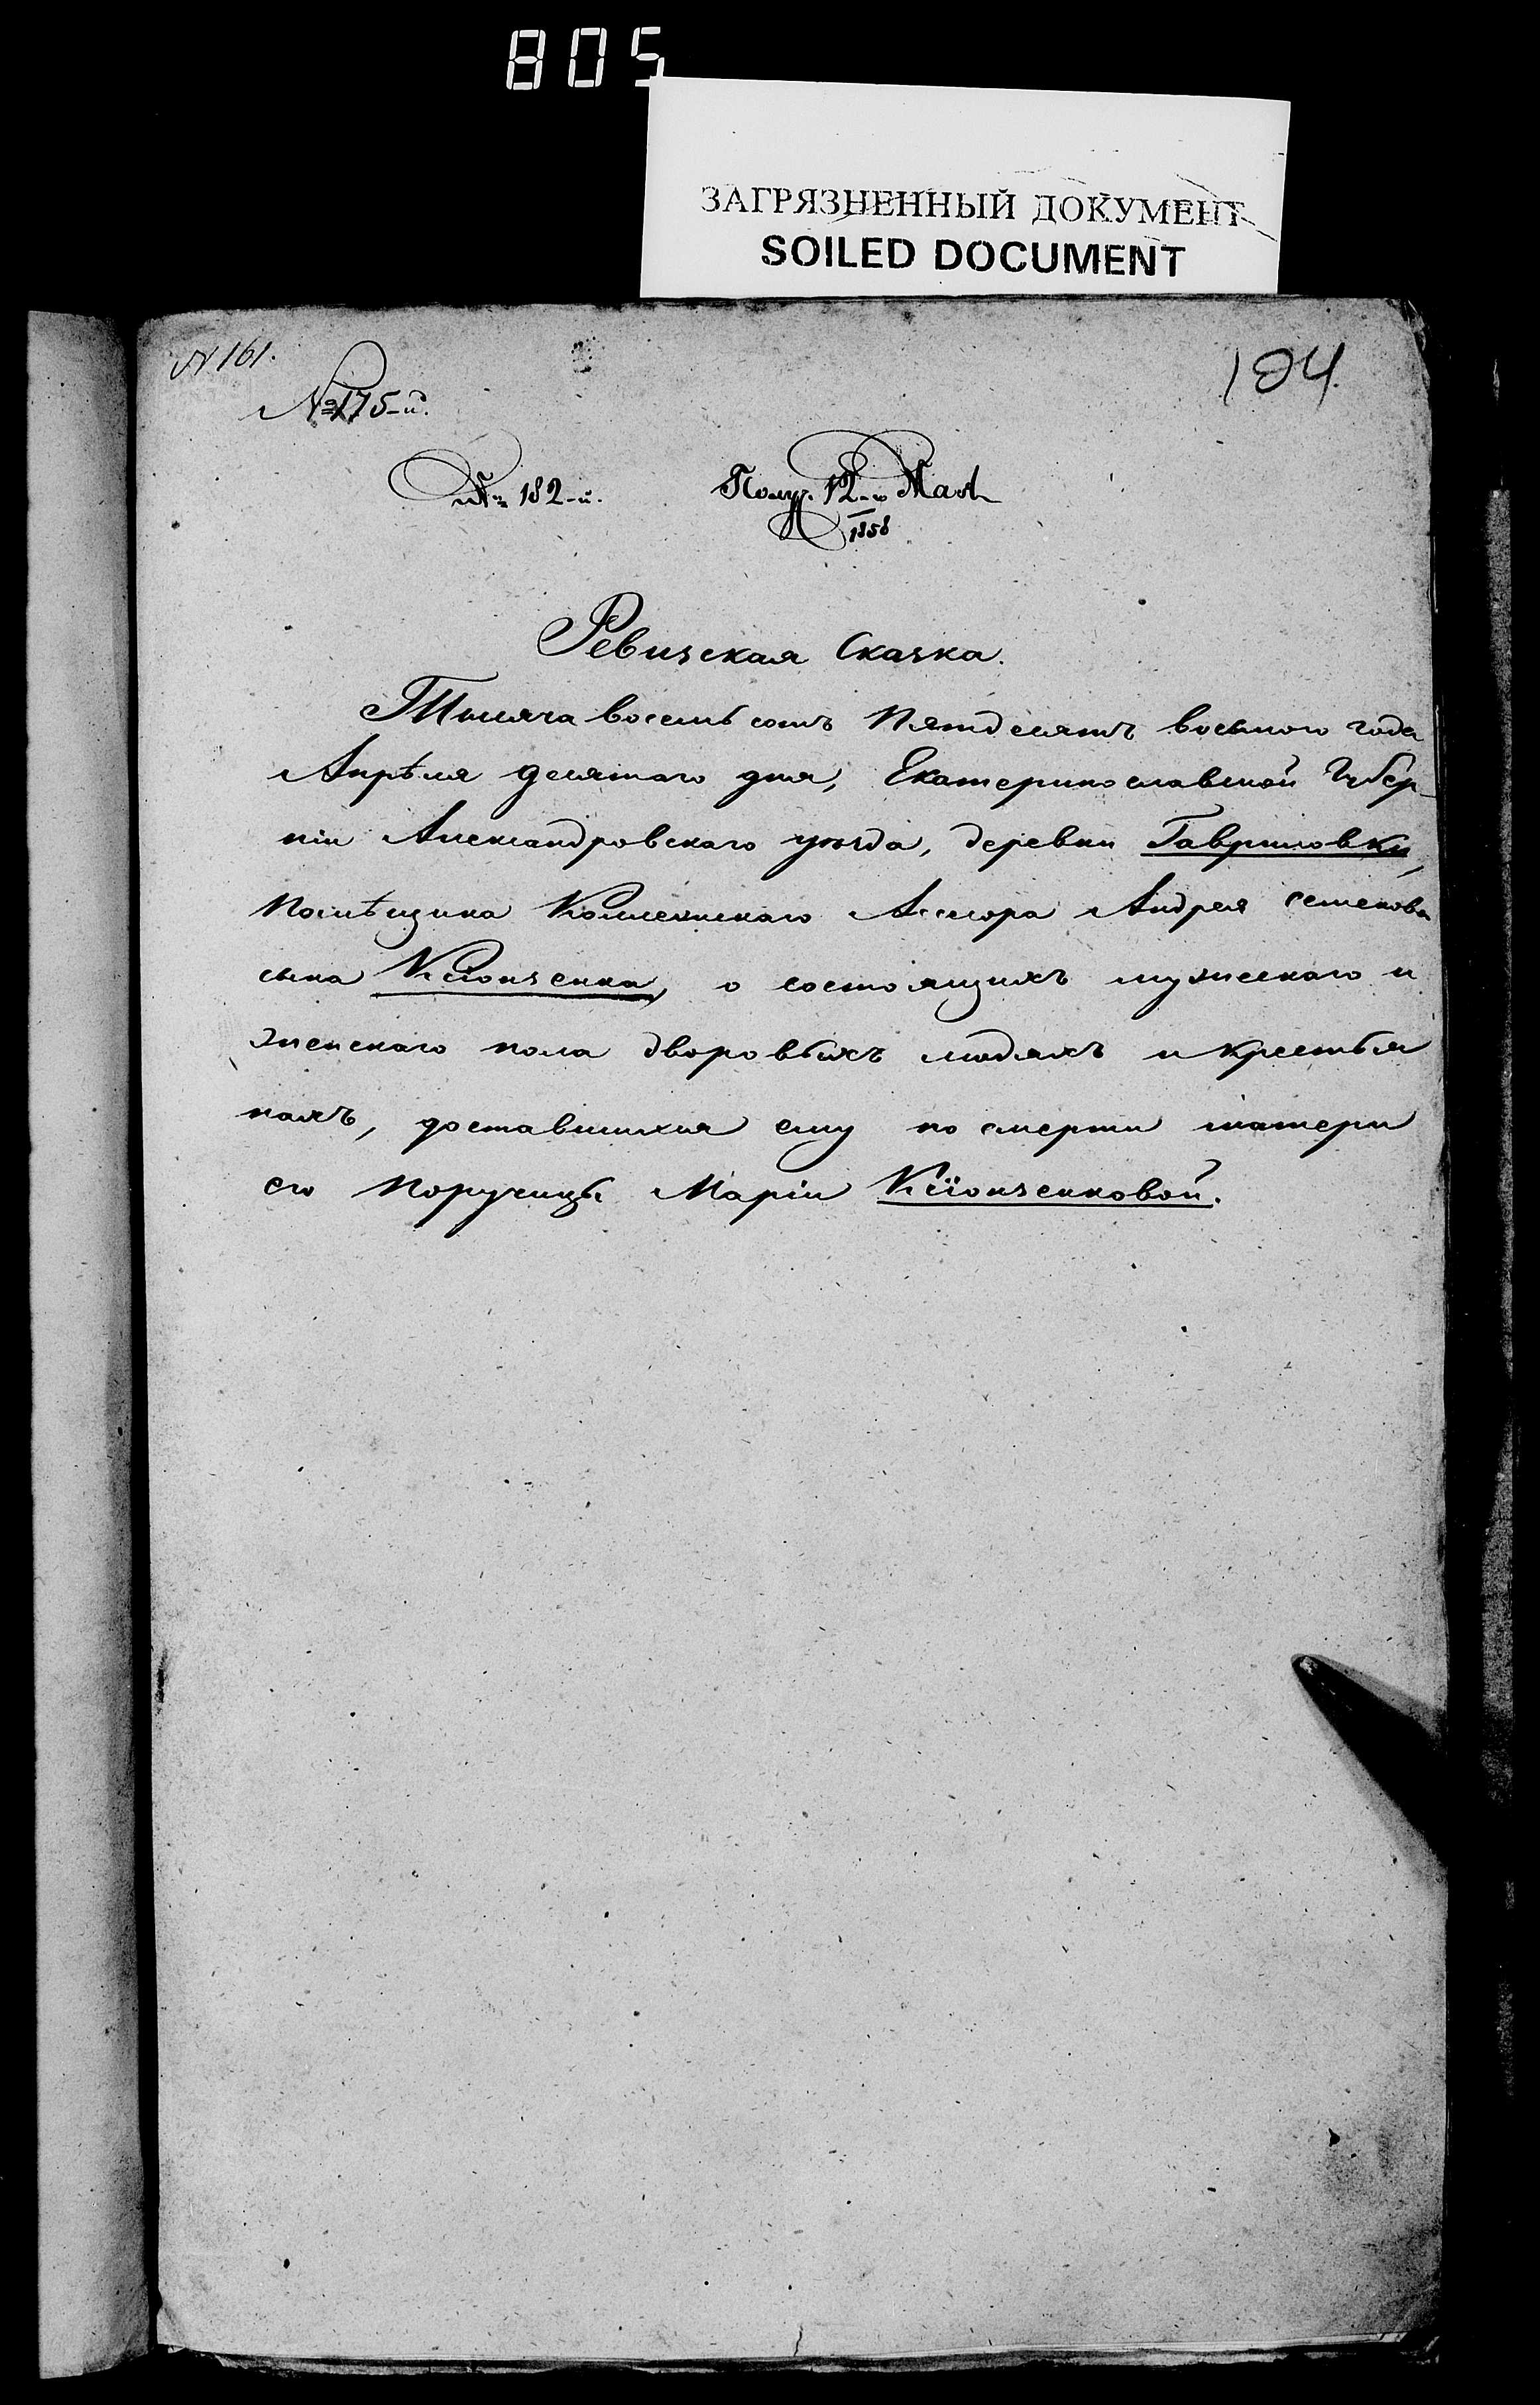 805
ЗАГРЯЗНЕННЫЙ ДОКУМЕНТ
SOILED DOCUMENT
N 161.
104.
№ 175-й.
№ 182-й. Получ. 12-го Мая
1858
Ревизская Сказка.
Тысяча восемь сотъ Пятдесятъ восьмого года
Апрѣля десятаго дня, Екатеринославской Губер-
ніи Александровскаго уѣзда, деревни Гавриловки,
Помѣщика Коллежскаго Ассесора Андрея Семенова
сына Ксіонзенка, о состоящихъ мужескаго и
женскаго пола дворовыхъ людяхъ и крестья
нахъ, доставшихся ему по смерти матери
его Поручицы Маріи Ксіонзенковой.